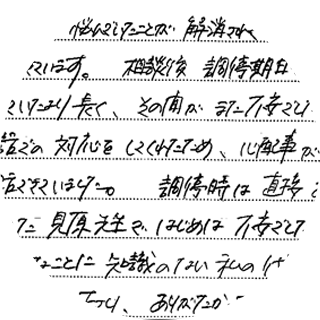 悩んでいたことが 解消され
ています。 相談後 調停期日
ていたより長く、その間が また不安でし
話での対応をしてくれたため、心配事が
できていました。 調停時は 直接
た 見原先生で、はじめは 不安でし
なことに 知識のない 私の
ました、ありがたか